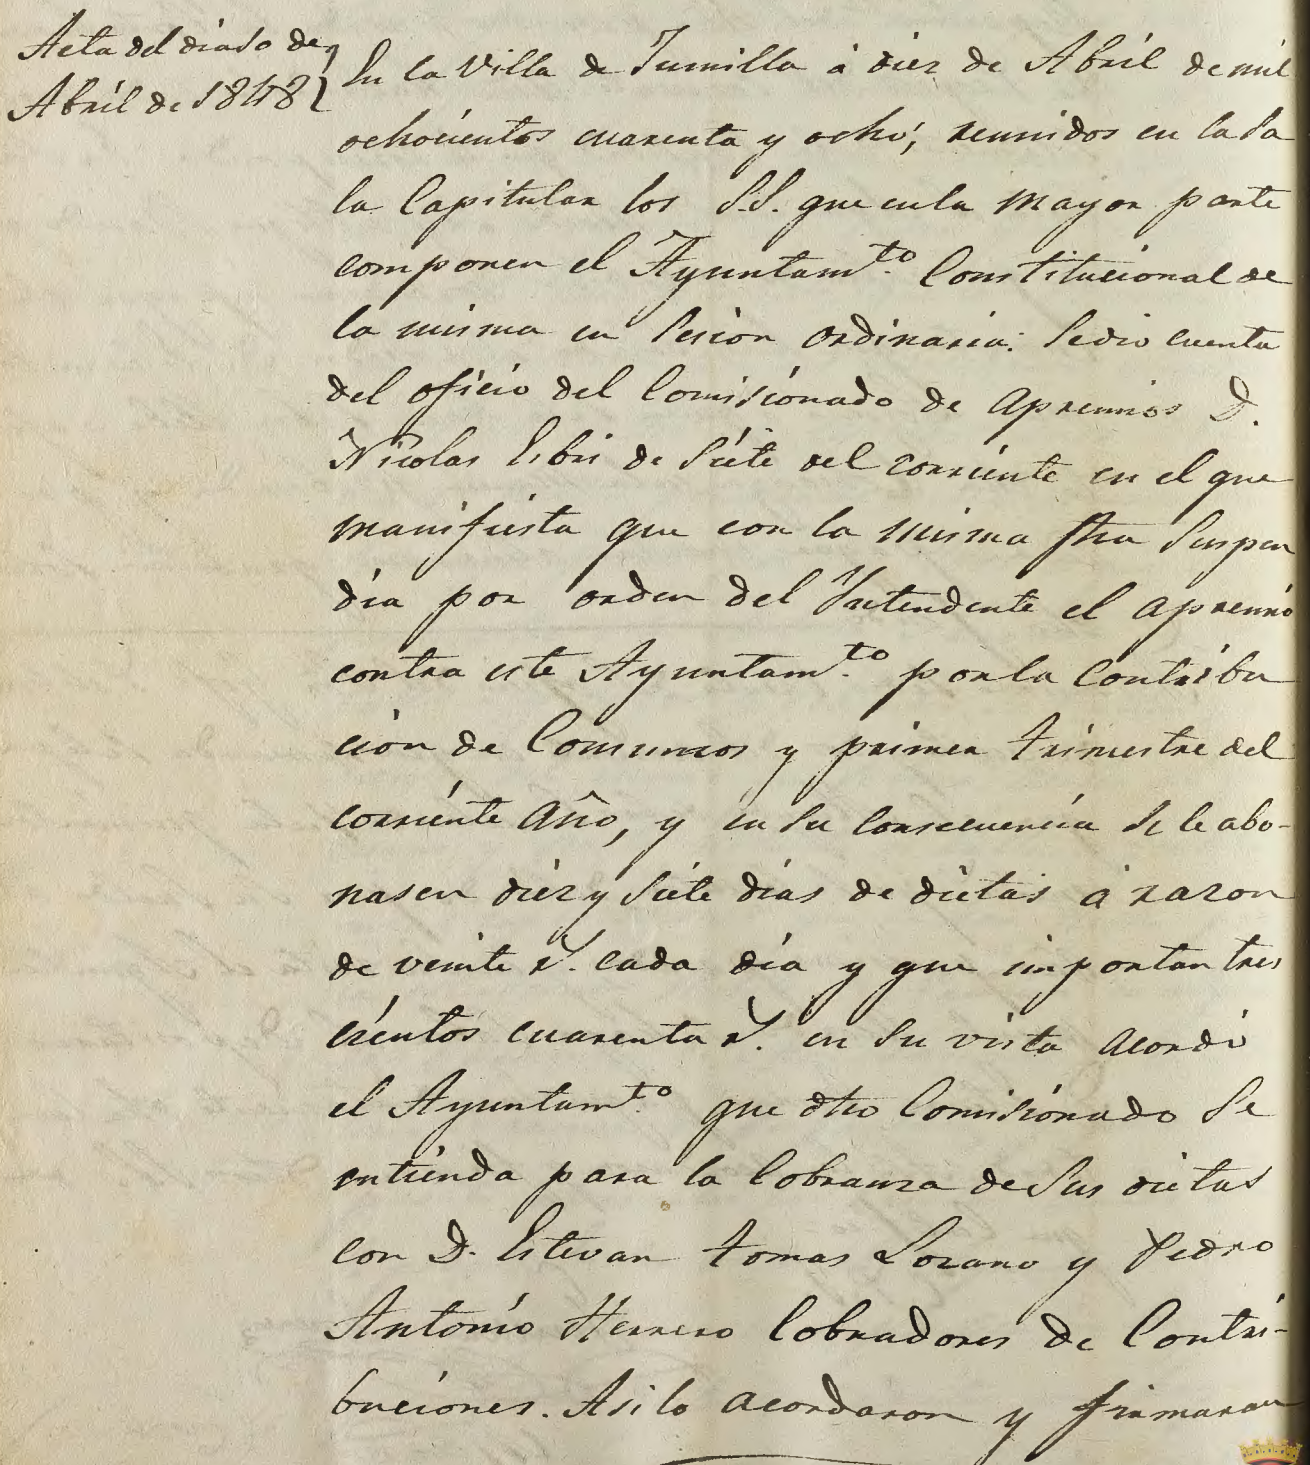 Acta del dia 10 de
Abril de 1848
En la Villa de Jumilla á diez de Abril de mil
ochocientos cuarenta y ocho; reunidos en la Sa
la Capitular los S.S. que en la mayor parte
componen el Ayuntam.to Constitucional de
la misma en Sesion ordinaria: Se dio cuenta
del oficio del Comisionado de apremios D.
Nicolas de Siete del corriente en el que
manifiesta que con la misma fha Suspen
dia por orden del Yntendente el apremio
contra este Ayuntam.to por la Contribu
cion de Consumos y primer trimestre del
corriente año, y en su consecuencia Se le abo-
nasen diez y Siete dias de dietas á razon
de veinte r.s cada dia y que importan tres
cientos cuarenta r.s en su vista acordó
el Ayuntam.to que dho Comisionado Se
entienda para la Cobranza de Sus dietas
con D. Estevan tomas Lozano y Pedro
Antonio Herrero Cobradores de Contri-
buciones. Asi lo acordaron y firmaran